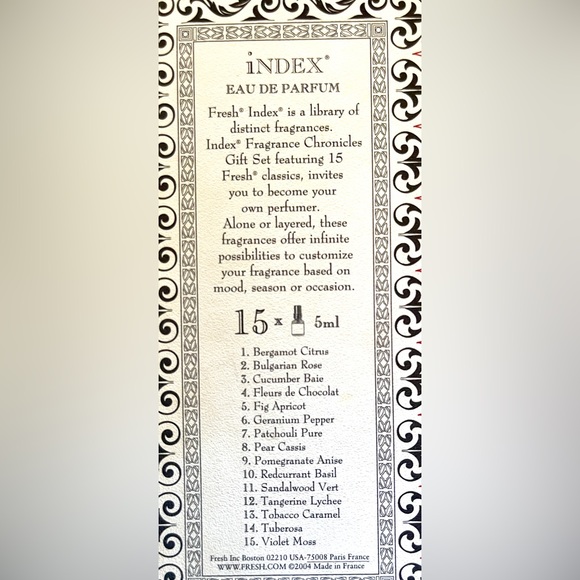 iNDEX®
EAU DE PARFUM
Fresh® Index® is a library of
distinct fragrances.
Index® Fragrance Chronicles
Gift Set featuring 15
Fresh® classics, invites
you to become your
own perfumer.
Alone or layered, these
fragrances offer infinite
possibilities to customize
your fragrance based on
mood, season or occasion.
15 x 5ml
1. Bergamot Citrus
2. Bulgarian Rose
3. Cucumber Baie
4. Fleurs de Chocolat
5. Fig Apricot
6. Geranium Pepper
7. Patchouli Pure
8. Pear Cassis
9. Pomegranate Anise
10. Redcurrant Basil
11. Sandalwood Vert
12. Tangerine Lychee
13. Tobacco Caramel
14. Tuberosa
15. Violet Moss
Fresh Inc Boston 02210 USA-75008 Paris France
WWW.FRESH.COM ©2004 Made in France